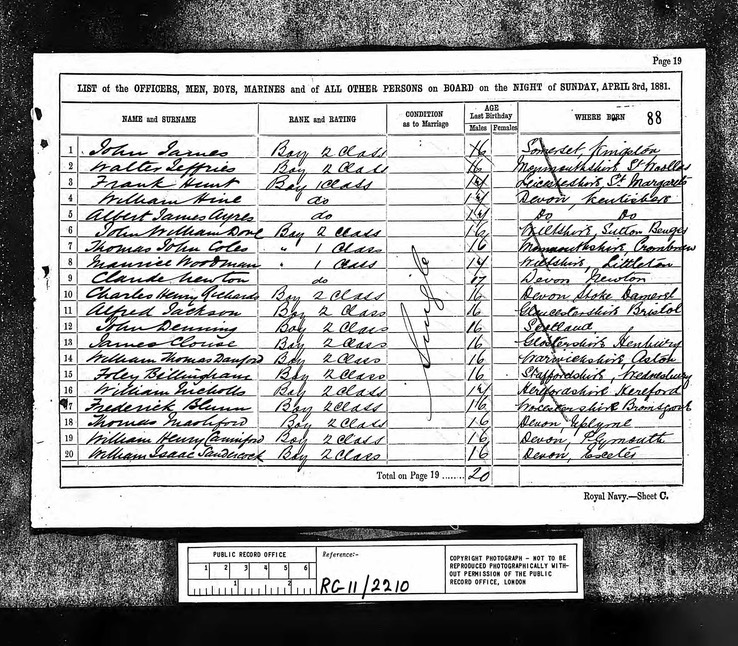 Page 19
LIST of the OFFICERS, MEN, BOYS, MARINES and of ALL OTHER PERSONS on BOARD on the NIGHT of SUNDAY, APRIL 3rd, 1881.
NAME and SURNAME RANK and RATING CONDITION as to Marriage AGE Last Birthday Males Females WHERE BORN 88
1 John James Boy 2 Class 16 Somerset
2 Walter Jeffries Boy 2 Class 16 Monmouthshire St
3 Frank Hunt Boy 1 Class Leicestershire St Margarets
4 William Hine do Devon,
5 Albert James Ayres do Do Do
6 John William Dove Boy 2 Class 16 Wiltshire, Sutton Benger
7 Thomas John Coles " 1 Class 16 Monmouthshire,
8 Maurice Woodman " 1 Class Wiltshire, Littleton
9 Claude Newton do 17 Devon Newton
10 Charles Henry Richards Boy 2 Class 16 Devon, Stoke Damerel
11 Alfred Jackson Boy 2 Class 16 Gloucestershire Bristol
12 John Denning Boy 2 Class 16 Scotland
13 James Boy 2 Class 16 Glostershire Henbury
14 William Thomas Boy 2 Class 16 Warwickshire, Aston
15 Foley Billingham Boy 2 Class 16 Staffordshire, Wednesbury
16 William Nicholls Boy 2 Class Herefordshire Hereford
17 Frederick Blunn Boy 2 Class 16 Worcestershire Bromsgrove
18 Thomas Boy 2 Class 16 Devon Uplyme
19 William Henry Boy 2 Class 16 Devon, Plymouth
20 William Isaac Sandercock Boy 2 Class 16 Devon, Exeter
Single
Total on Page 19 ...... 20
Royal Navy.—Sheet C.
PUBLIC RECORD OFFICE
1 2 3 4 5 6
1 2
Reference:-
RG 11/2210
COPYRIGHT PHOTOGRAPH - NOT TO BE
REPRODUCED PHOTOGRAPHICALLY WITH-
OUT PERMISSION OF THE PUBLIC
RECORD OFFICE, LONDON